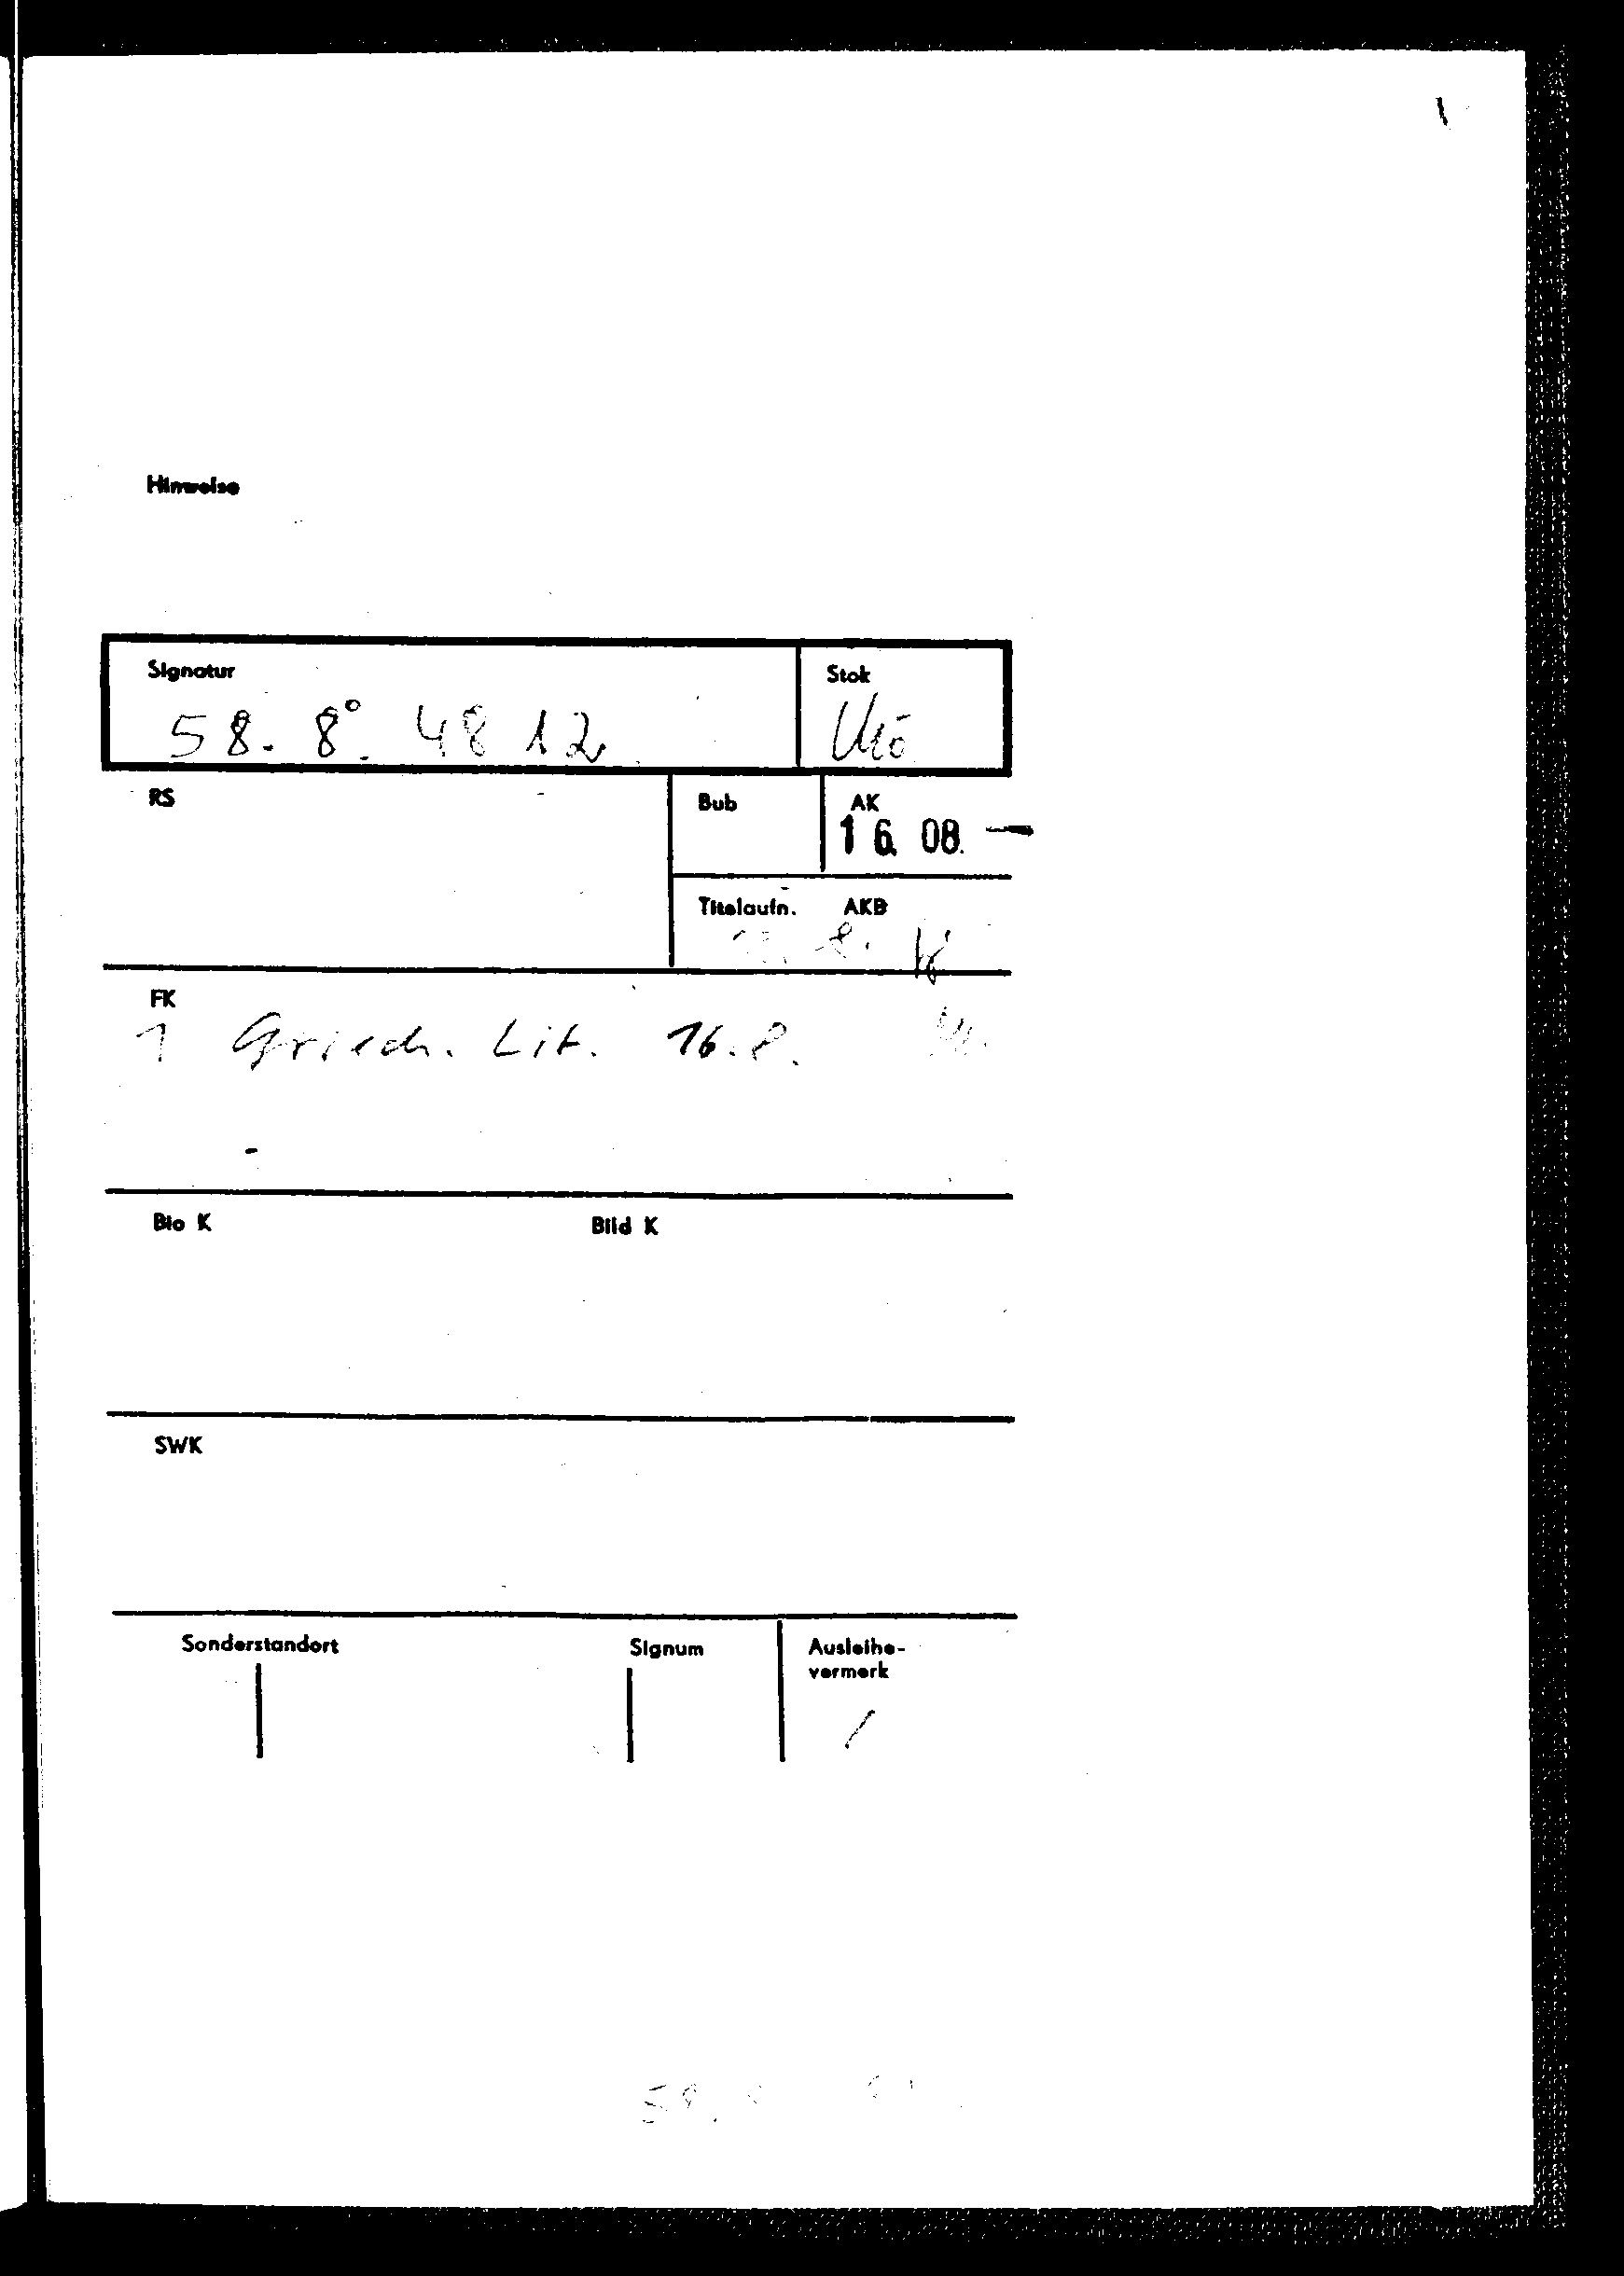 Hinweise
Signatur Stok
58. 8°. 4812
RS Bub AK
16. 08.
Titelaufn. AKB
FK
1 Griech. Lit. 16.8.
Bio K Bild K
SWK
Sonderstandort Signum Ausleihe-
vermerk